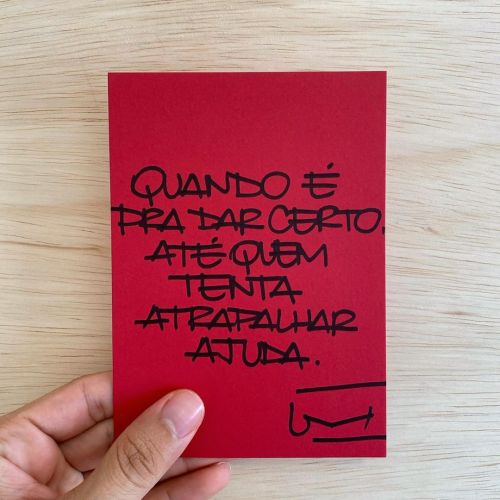 QUANDO É
PRA DAR CERTO,
ATÉ QUEM
TENTA
ATRAPALHAR
AJUDA.